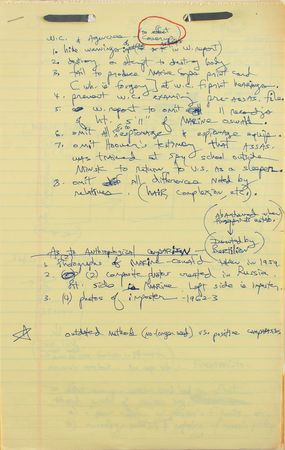 to effect
W.C. & Agencies Coverup
1. hide warnings in W. report)
2. destroy or attempt to destroy
3. fail to produce Marine Corps print card
C wh. is forgery at W.C. fiprint hearings.
4. prevent W.C. examining pre-assas. files
5. W. report to omit all records
of ht. 5'11" of Marine Oswald
6. omit all espionage & espionage equip.
7. omit Hoover's testimony that ASSAS.
was trained at spy school outside
Minsk to return to U.S. as a sleeper.
8. omit all differences noted by
relatives. (Hair, complexion etc.)
(Abandoned when
(Invented by
Bertillon)
As to Anthropological comparison
1. Photographs of Marine Oswald taken in 1959.
2. (2) composite photos created in Russia.
Rt. side is Marine Left side is imposter.
3. (4) photos of imposter - 1962-3
outdated method (no longer used) vs. positive